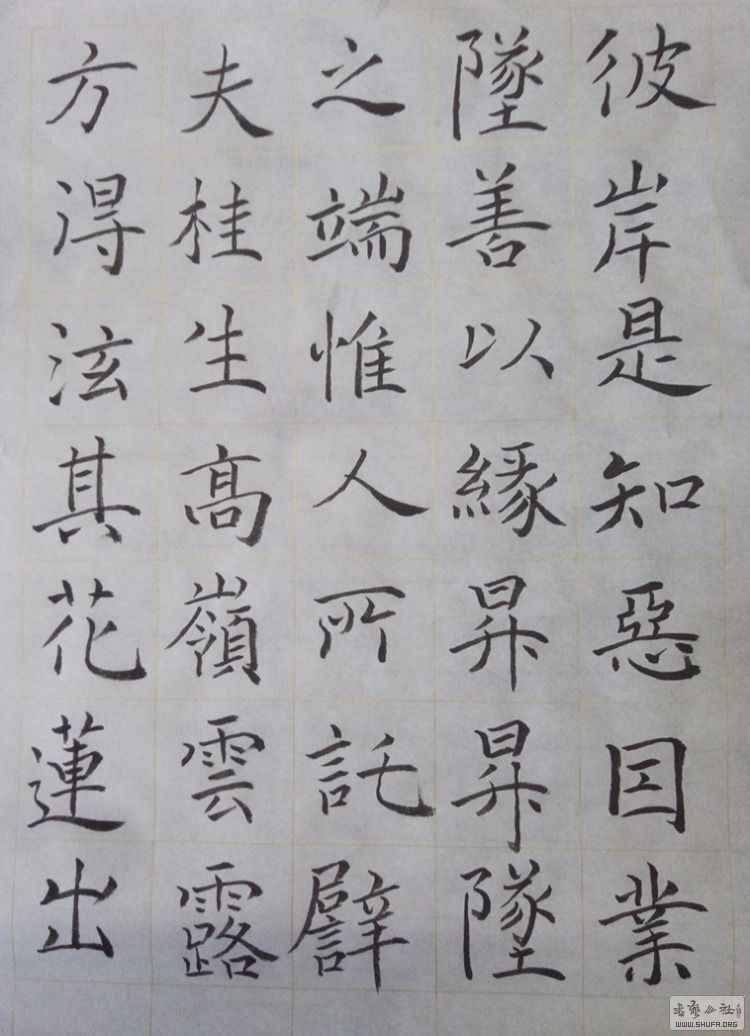 彼岸是知惡因業
墜善以緣昇昇墜
之端惟人所託譬
夫桂生高嶺雲露
方得泫其花蓮出
WWW.SHUFA.ORG